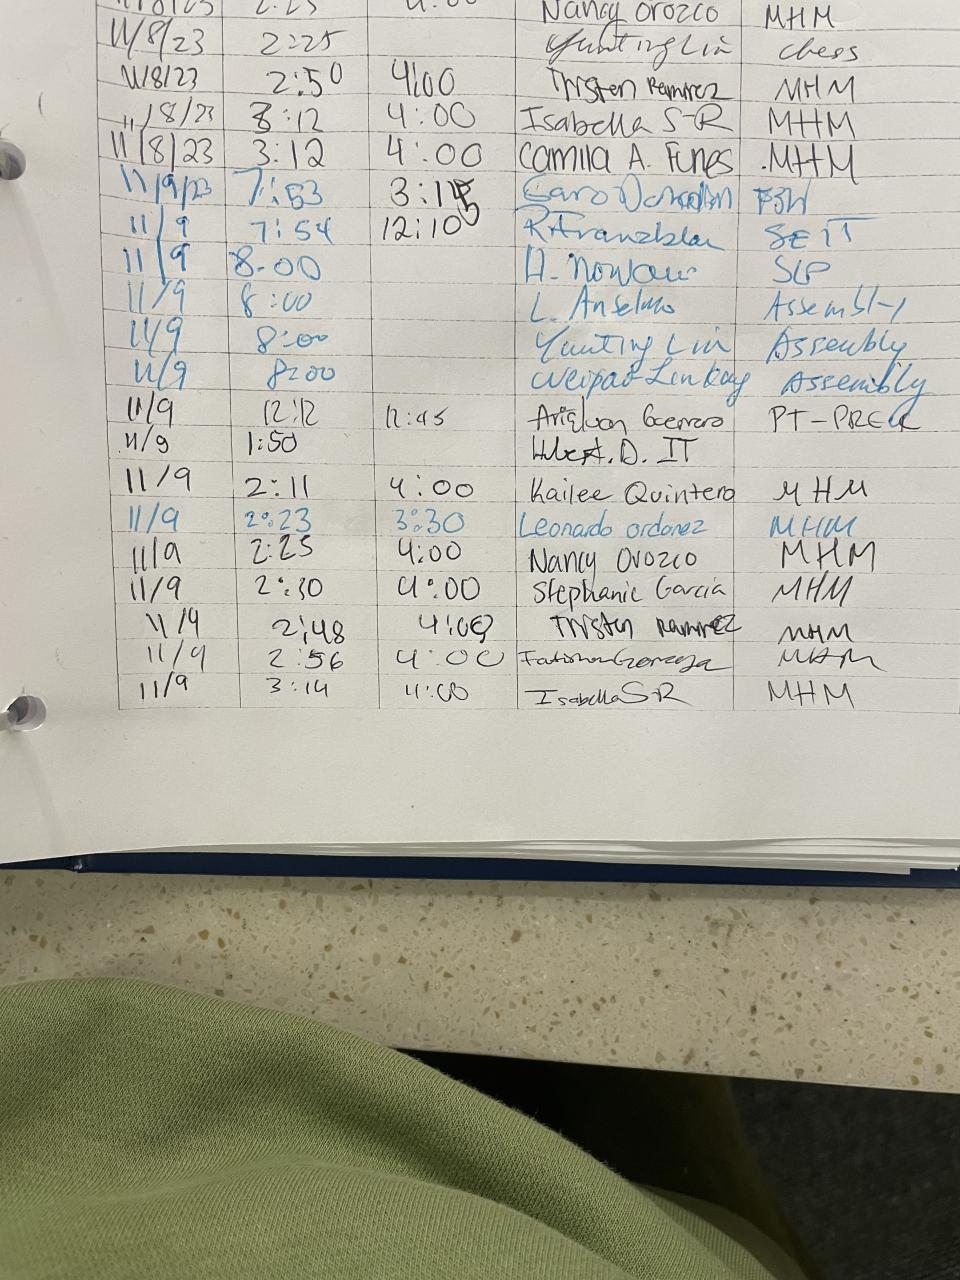 2:25 4:00 Nancy Orozco MHM
11/8/23 2:25 Yunting Lin chess
11/8/23 2:50 4:00 Tristen Ramirez MHM
11/8/23 3:12 4:00 Isabella S-R MHM
11/8/23 3:12 4:00 Camila A. Funes MHM
11/9/23 7:53 3:15
11/9 7:54 12:10 SEIT
11/9 8:00 SLP
11/9 8:00 L. Anselmo Assembly
11/9 8:00 Yunting Lin Assembly
11/9 8:00 Assembly
11/9 12:12 PT-PREK
11/9 1:50 D. IT
11/9 2:11 4:00 Kailee Quintero MHM
11/9 2:23 3:30 Leonardo ordonez MHM
11/9 2:25 4:00 Nancy Orozco MHM
11/9 2:30 4:00 Stephanie Garcia MHM
11/9 2:48 4:00 Tristen Ramirez MHM
11/9 2:56 4:00 MHM
11/9 3:14 4:00 Isabella S-R MHM